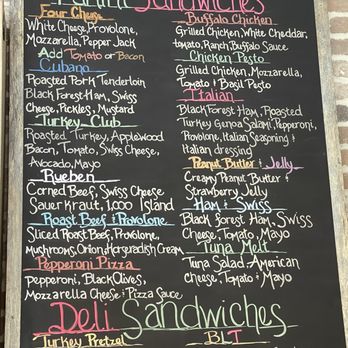 Panini Sandwiches
Four Cheese
White Cheese, Provolone,
Mozzarella, Pepper Jack
Add Tomato or Bacon
Cubano
Roasted Pork Tenderloin
Black Forest Ham, Swiss
Cheese, Pickles, Mustard
Turkey Club
Roasted Turkey, Applewood
Bacon, Tomato, Swiss Cheese,
Avocado, Mayo
Rueben
Corned Beef, Swiss Cheese
Sauerkraut, 1,000 Island
Roast Beef & Provolone
Sliced Roast Beef, Provolone,
Mushrooms, Onion, Horseradish Cream
Pepperoni Pizza
Pepperoni, Black Olives,
Mozzarella Cheese & Pizza Sauce
Buffalo Chicken
Grilled Chicken, White Cheddar,
tomato, Ranch, Buffalo Sauce
Chicken Pesto
Grilled Chicken, Mozzarella,
Tomato & Basil Pesto
Italian
Black Forest Ham, Roasted
Turkey Genoa Salami, Pepperoni,
Provolone, Italian Seasoning &
Italian dressing
Peanut Butter & Jelly
Creamy Peanut Butter &
Strawberry Jelly
Ham & Swiss
Black Forest Ham, Swiss
Cheese, Tomato, Mayo
Tuna Melt
Tuna Salad, American
Cheese, Tomato & Mayo
Deli Sandwiches
Turkey Pretzel
BLT